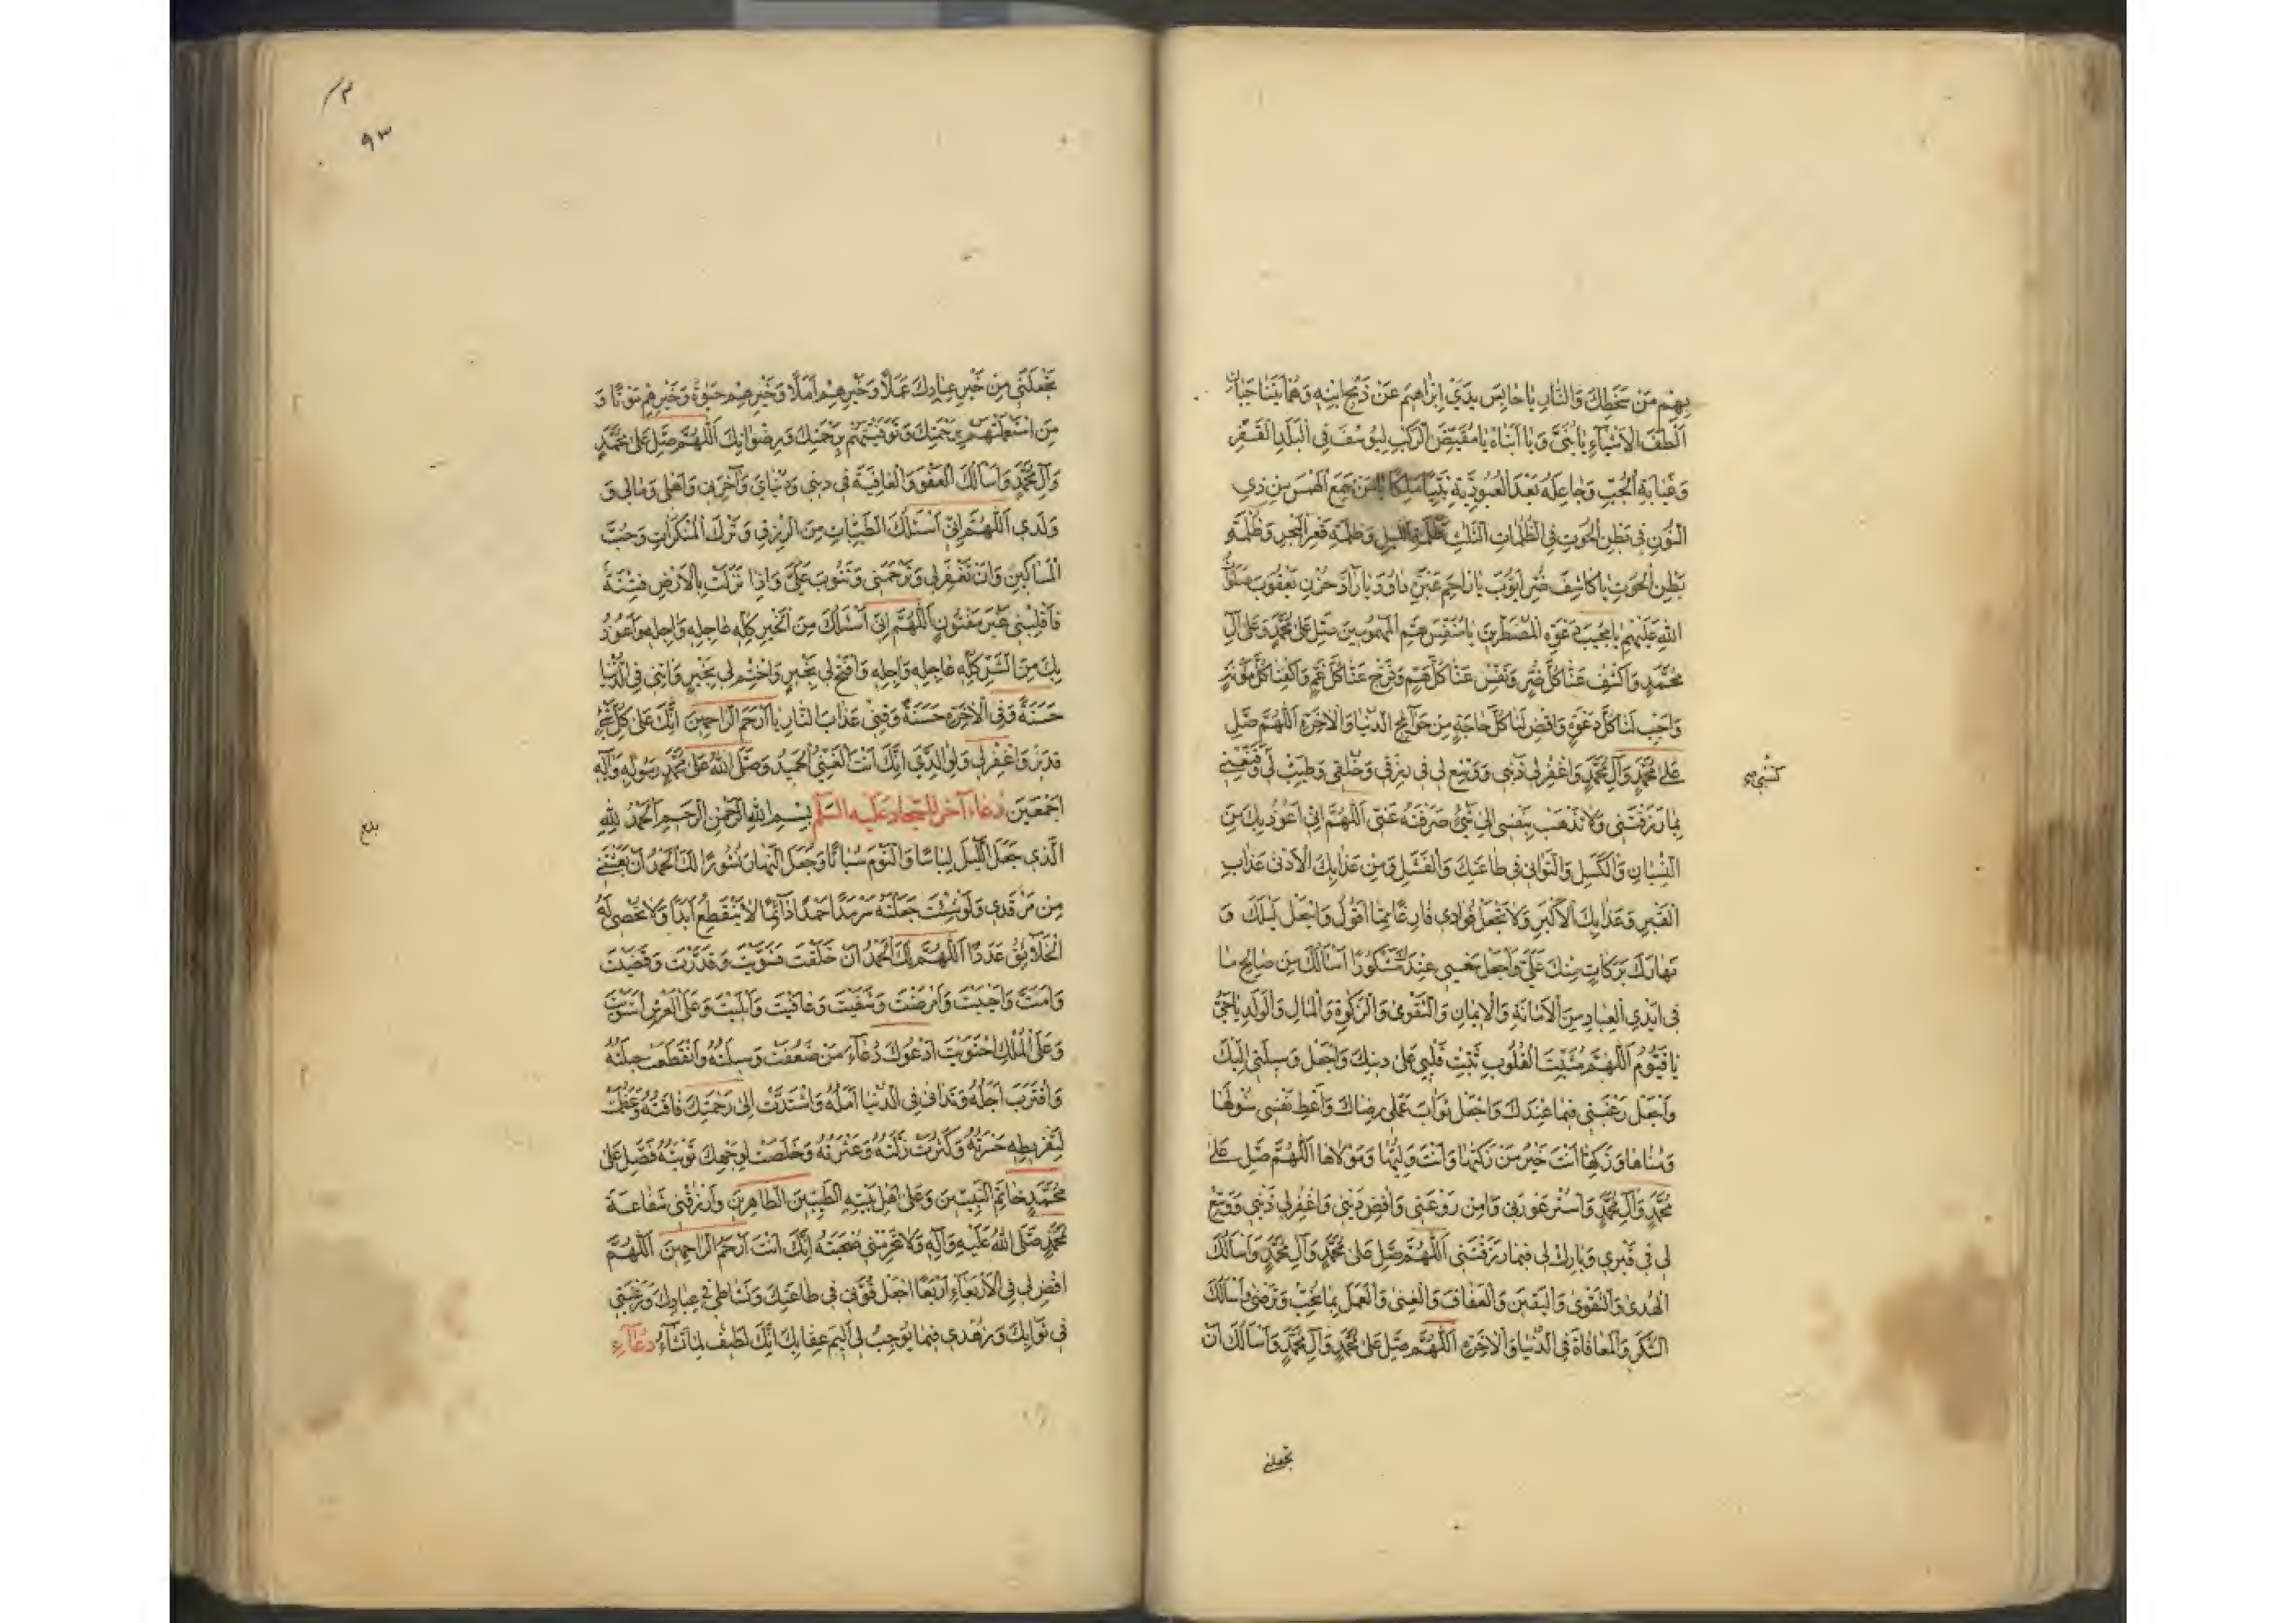 بِهِمْ مَنْ سَخَطِكَ وَالنَّارِ يَا حَابِسَ يَدَيْ اِبْرَاهِيمَ عَنْ ذَبْحِ ابْنِهِ وَهُمَا يَتَنَاجَيَانِ
اَلْطَفَ الْاَشْيَاءِ يَا بُنَيَّ وَيَا اَبَتَاهُ يَا مُقَيِّضَ الرَّكْبِ لِيُوسُفَ فِي الْبَلَدِ الْقَفْرِ
وَغَيَابَةِ الْجُبِّ وَجَاعِلَهُ بَعْدَ الْعُبُودِيَّةِ نَبِيًّا مَلِكًا يَا مَنْ سَمِعَ الْهَمْسَ مِنْ ذِي
النُّونِ فِي بَطْنِ الْحُوتِ فِي الظُّلُمَاتِ الثَّلَاثِ ظُلْمَةِ اللَّيْلِ وَظُلْمَةِ قَعْرِ الْبَحْرِ وَظُلْمَةِ
بَطْنِ الْحُوتِ يَا كَاشِفَ ضُرِّ اَيُّوبَ يَا رَاحِمَ عَبْرَةِ دَاوُدَ يَا رَادَّ حُزْنِ يَعْقُوبَ صَلَوَاتُ
اللهِ عَلَيْهِمْ يَا مُجِيبَ دَعْوَةِ الْمُضْطَرِّينَ يَا مُنَفِّسَ هَمِّ الْمَهْمُومِينَ صَلِّ عَلَى مُحَمَّدٍ وَعَلَى آلِ
مُحَمَّدٍ وَاكْشِفْ عَنَّا كُلَّ ضُرٍّ وَنَفِّسْ عَنَّا كُلَّ هَمٍّ وَفَرِّجْ عَنَّا كُلَّ غَمٍّ وَاكْفِنَا كُلَّ مَؤُنَةٍ
وَاَجِبْ لَنَا كُلَّ دَعْوَةٍ وَاقْضِ لَنَا كُلَّ حَاجَةٍ مِنْ حَوَائِجِ الدُّنْيَا وَالْاٰخِرَةِ اَللّٰهُمَّ صَلِّ
عَلَى مُحَمَّدٍ وَآلِ مُحَمَّدٍ وَاغْفِرْ لِي ذَنْبِي وَوَسِّعْ لِي فِي رِزْقِي وَخُلُقِي وَطَيِّبْ لِي وَقَنِّعْنِي
بِمَا رَزَقْتَنِي وَلَا تَذْهَبْ بِنَفْسِي اِلَى شَيْءٍ صَرَفْتَهُ عَنِّي اَللّٰهُمَّ اِنِّي اَعُوذُ بِكَ مِنَ
النِّسْيَانِ وَالْكَسَلِ وَالتَّوَانِي فِي طَاعَتِكَ وَالْفَشَلِ وَمِنْ عَذَابِكَ الْاَدْنَى عَذَابِ
الْقَبْرِ وَعَذَابِكَ الْاَكْبَرِ وَلَا تَجْعَلْ فُؤَادِي فَارِغًا مِمَّا اَقُولُ وَاجْعَلْ لَيْلَكَ وَ
نَهَارَكَ بَرَكَاتٍ مِنْكَ عَلَيَّ وَاجْعَلْ سَعْيِي عِنْدَكَ مَشْكُورًا اَسْأَلُكَ مِنْ صَالِحِ مَا
فِي اَيْدِي الْعِبَادِ مِنَ الْاَمَانَةِ وَالْاِيمَانِ وَالتَّقْوَى وَالزَّكٰوةِ وَالْمَالِ وَالْوَلَدِ يَا حَيُّ
يَا قَيُّومُ اَللّٰهُمَّ مُثَبِّتَ الْقُلُوبِ ثَبِّتْ قَلْبِي عَلَى دِينِكَ وَاجْعَلْ وَسِيلَتِي اِلَيْكَ
وَاجْعَلْ رَغْبَتِي فِيمَا عِنْدَكَ وَاجْعَلْ ثَوَابَ عَمَلِي رِضَاكَ وَاَعْطِ نَفْسِي سُؤْلَهَا
وَمُنَاهَا وَزَكِّهَا اَنْتَ خَيْرُ مَنْ زَكَّيْهَا وَاَنْتَ وَلِيُّهَا وَمَوْلَاهَا اَللّٰهُمَّ صَلِّ عَلَى
مُحَمَّدٍ وَآلِ مُحَمَّدٍ وَاسْتُرْ عَوْرَتِي وَآمِنْ رَوْعَتِي وَاقْضِ دَيْنِي وَاغْفِرْ لِي ذَنْبِي وَوَسِّعْ
لِي فِي قَبْرِي وَبَارِكْ لِي فِيمَا رَزَقْتَنِي اَللّٰهُمَّ صَلِّ عَلَى مُحَمَّدٍ وَآلِ مُحَمَّدٍ وَاَسْأَلُكَ
الْهُدَى وَالتَّقْوَى وَالْيَقِينَ وَالْعَفَافَ وَالْغِنَى وَالْعَمَلَ بِمَا تُحِبُّ وَتَرْضَى وَاَسْأَلُكَ
الشُّكْرَ وَالْمُعَافَاةَ فِي الدُّنْيَا وَالْاٰخِرَةِ اَللّٰهُمَّ صَلِّ عَلَى مُحَمَّدٍ وَآلِ مُحَمَّدٍ وَاَسْأَلُكَ اَنْ
تجعلني
٩٣
تَجْعَلَنِي مِنْ خَيْرِ عِبَادِكَ عَمَلًا وَخَيْرِهِمْ اَمَلًا وَخَيْرِهِمْ حَيٰوةً وَخَيْرِهِمْ مَوْتًا وَ
مَنِ اسْتَعْمَلْتَهُمْ بِرَحْمَتِكَ وَتَوَفَّيْتَهُمْ بِرَحْمَتِكَ وَرِضْوَانِكَ اَللّٰهُمَّ صَلِّ عَلَى مُحَمَّدٍ
وَآلِ مُحَمَّدٍ وَاَسْأَلُكَ الْعَفْوَ وَالْعَافِيَةَ فِي دِينِي وَدُنْيَايَ وَآخِرَتِي وَاَهْلِي وَمَالِي وَ
وَلَدِي اَللّٰهُمَّ اِنِّي اَسْئَلُكَ الطَّيِّبَاتِ مِنَ الرِّزْقِ وَتَرْكَ الْمُنْكَرَاتِ وَحُبَّ
الْمَسَاكِينِ وَاَنْ تَغْفِرَ لِي وَتَرْحَمَنِي وَتَتُوبَ عَلَيَّ وَاِذَا نَزَلَتْ بِالْاَرْضِ فِتْنَةٌ
فَاقْلِبْنِي غَيْرَ مَفْتُونٍ اَللّٰهُمَّ اِنِّي اَسْئَلُكَ مِنَ الْخَيْرِ كُلِّهِ عَاجِلِهِ وَآجِلِهِ وَاَعُوذُ
بِكَ مِنَ الشَّرِّ كُلِّهِ عَاجِلِهِ وَآجِلِهِ وَافْتَحْ لِي بِخَيْرٍ وَاخْتِمْ لِي بِخَيْرٍ وَآتِنِي فِي الدُّنْيَا
حَسَنَةً وَفِي الْاٰخِرَةِ حَسَنَةً وَقِنِي عَذَابَ النَّارِ يَا اَرْحَمَ الرَّاحِمِينَ اِنَّكَ عَلَى كُلِّ شَيْءٍ
قَدِيرٌ وَاغْفِرْ لِي وَلِوَالِدَيَّ اِنَّكَ اَنْتَ الْغَنِيُّ الْحَمِيدُ وَصَلَّى اللهُ عَلَى مُحَمَّدٍ رَسُولِهِ وَآلِهِ
اَجْمَعِينَ دُعَاء آخر للسجاد عَلَيْهِ السَّلَم بِسْمِ اللهِ الرَّحْمٰنِ الرَّحِيمِ اَلْحَمْدُ لِلّٰهِ
الَّذِي جَعَلَ اللَّيْلَ لِبَاسًا وَالنَّوْمَ سُبَاتًا وَجَعَلَ النَّهَارَ نُشُورًا لَكَ الْحَمْدُ اَنْ بَعَثْتَنِي
مِنْ مَرْقَدِي وَلَوْ شِئْتَ جَعَلْتَهُ سَرْمَدًا حَمْدًا دَائِمًا لَا يَنْقَطِعُ اَبَدًا وَلَا تُحْصِي لَهُ
الْخَلَائِقُ عَدَدًا اَللّٰهُمَّ لَكَ الْحَمْدُ اَنْ خَلَقْتَ فَسَوَّيْتَ وَقَدَّرْتَ وَقَضَيْتَ
وَاَمَتَّ وَاَحْيَيْتَ وَاَمْرَضْتَ وَشَفَيْتَ وَعَافَيْتَ وَاَبْلَيْتَ وَعَلَى الْعَرْشِ اسْتَوَيْتَ
وَعَلَى الْمُلْكِ احْتَوَيْتَ اَدْعُوكَ دُعَاءَ مَنْ ضَعُفَتْ وَسِيلَتُهُ وَانْقَطَعَتْ حِيلَتُهُ
وَاقْتَرَبَ اَجَلُهُ وَتَدَانَى فِي الدُّنْيَا اَمَلُهُ وَاشْتَدَّتْ اِلَى رَحْمَتِكَ فَاقَتُهُ وَعَظُمَتْ
لِتَفْرِيطِهِ حَسْرَتُهُ وَكَثُرَتْ زَلَّتُهُ وَعَثْرَتُهُ وَخَلَصَتْ لِوَجْهِكَ تَوْبَتُهُ فَصَلِّ عَلَى
مُحَمَّدٍ خَاتَمِ النَّبِيِّينَ وَعَلَى اَهْلِ بَيْتِهِ الطَّيِّبِينَ الطَّاهِرِينَ وَارْزُقْنِي شَفَاعَةَ
مُحَمَّدٍ صَلَّى اللهُ عَلَيْهِ وَآلِهِ وَلَا تَحْرِمْنِي صُحْبَتَهُ اِنَّكَ اَنْتَ اَرْحَمُ الرَّاحِمِينَ اَللّٰهُمَّ
اقْضِ لِي فِي الْاَرْبَعَاءِ اَرْبَعًا اجْعَلْ قُوَّتِي فِي طَاعَتِكَ وَنَشَاطِي فِي عِبَادَتِكَ وَرَغْبَتِي
فِي ثَوَابِكَ وَزُهْدِي فِيمَا يُوجِبُ لِي اَلِيمَ عِقَابِكَ اِنَّكَ لَطِيفٌ لِمَا تَشَاءُ دُعَاءِ